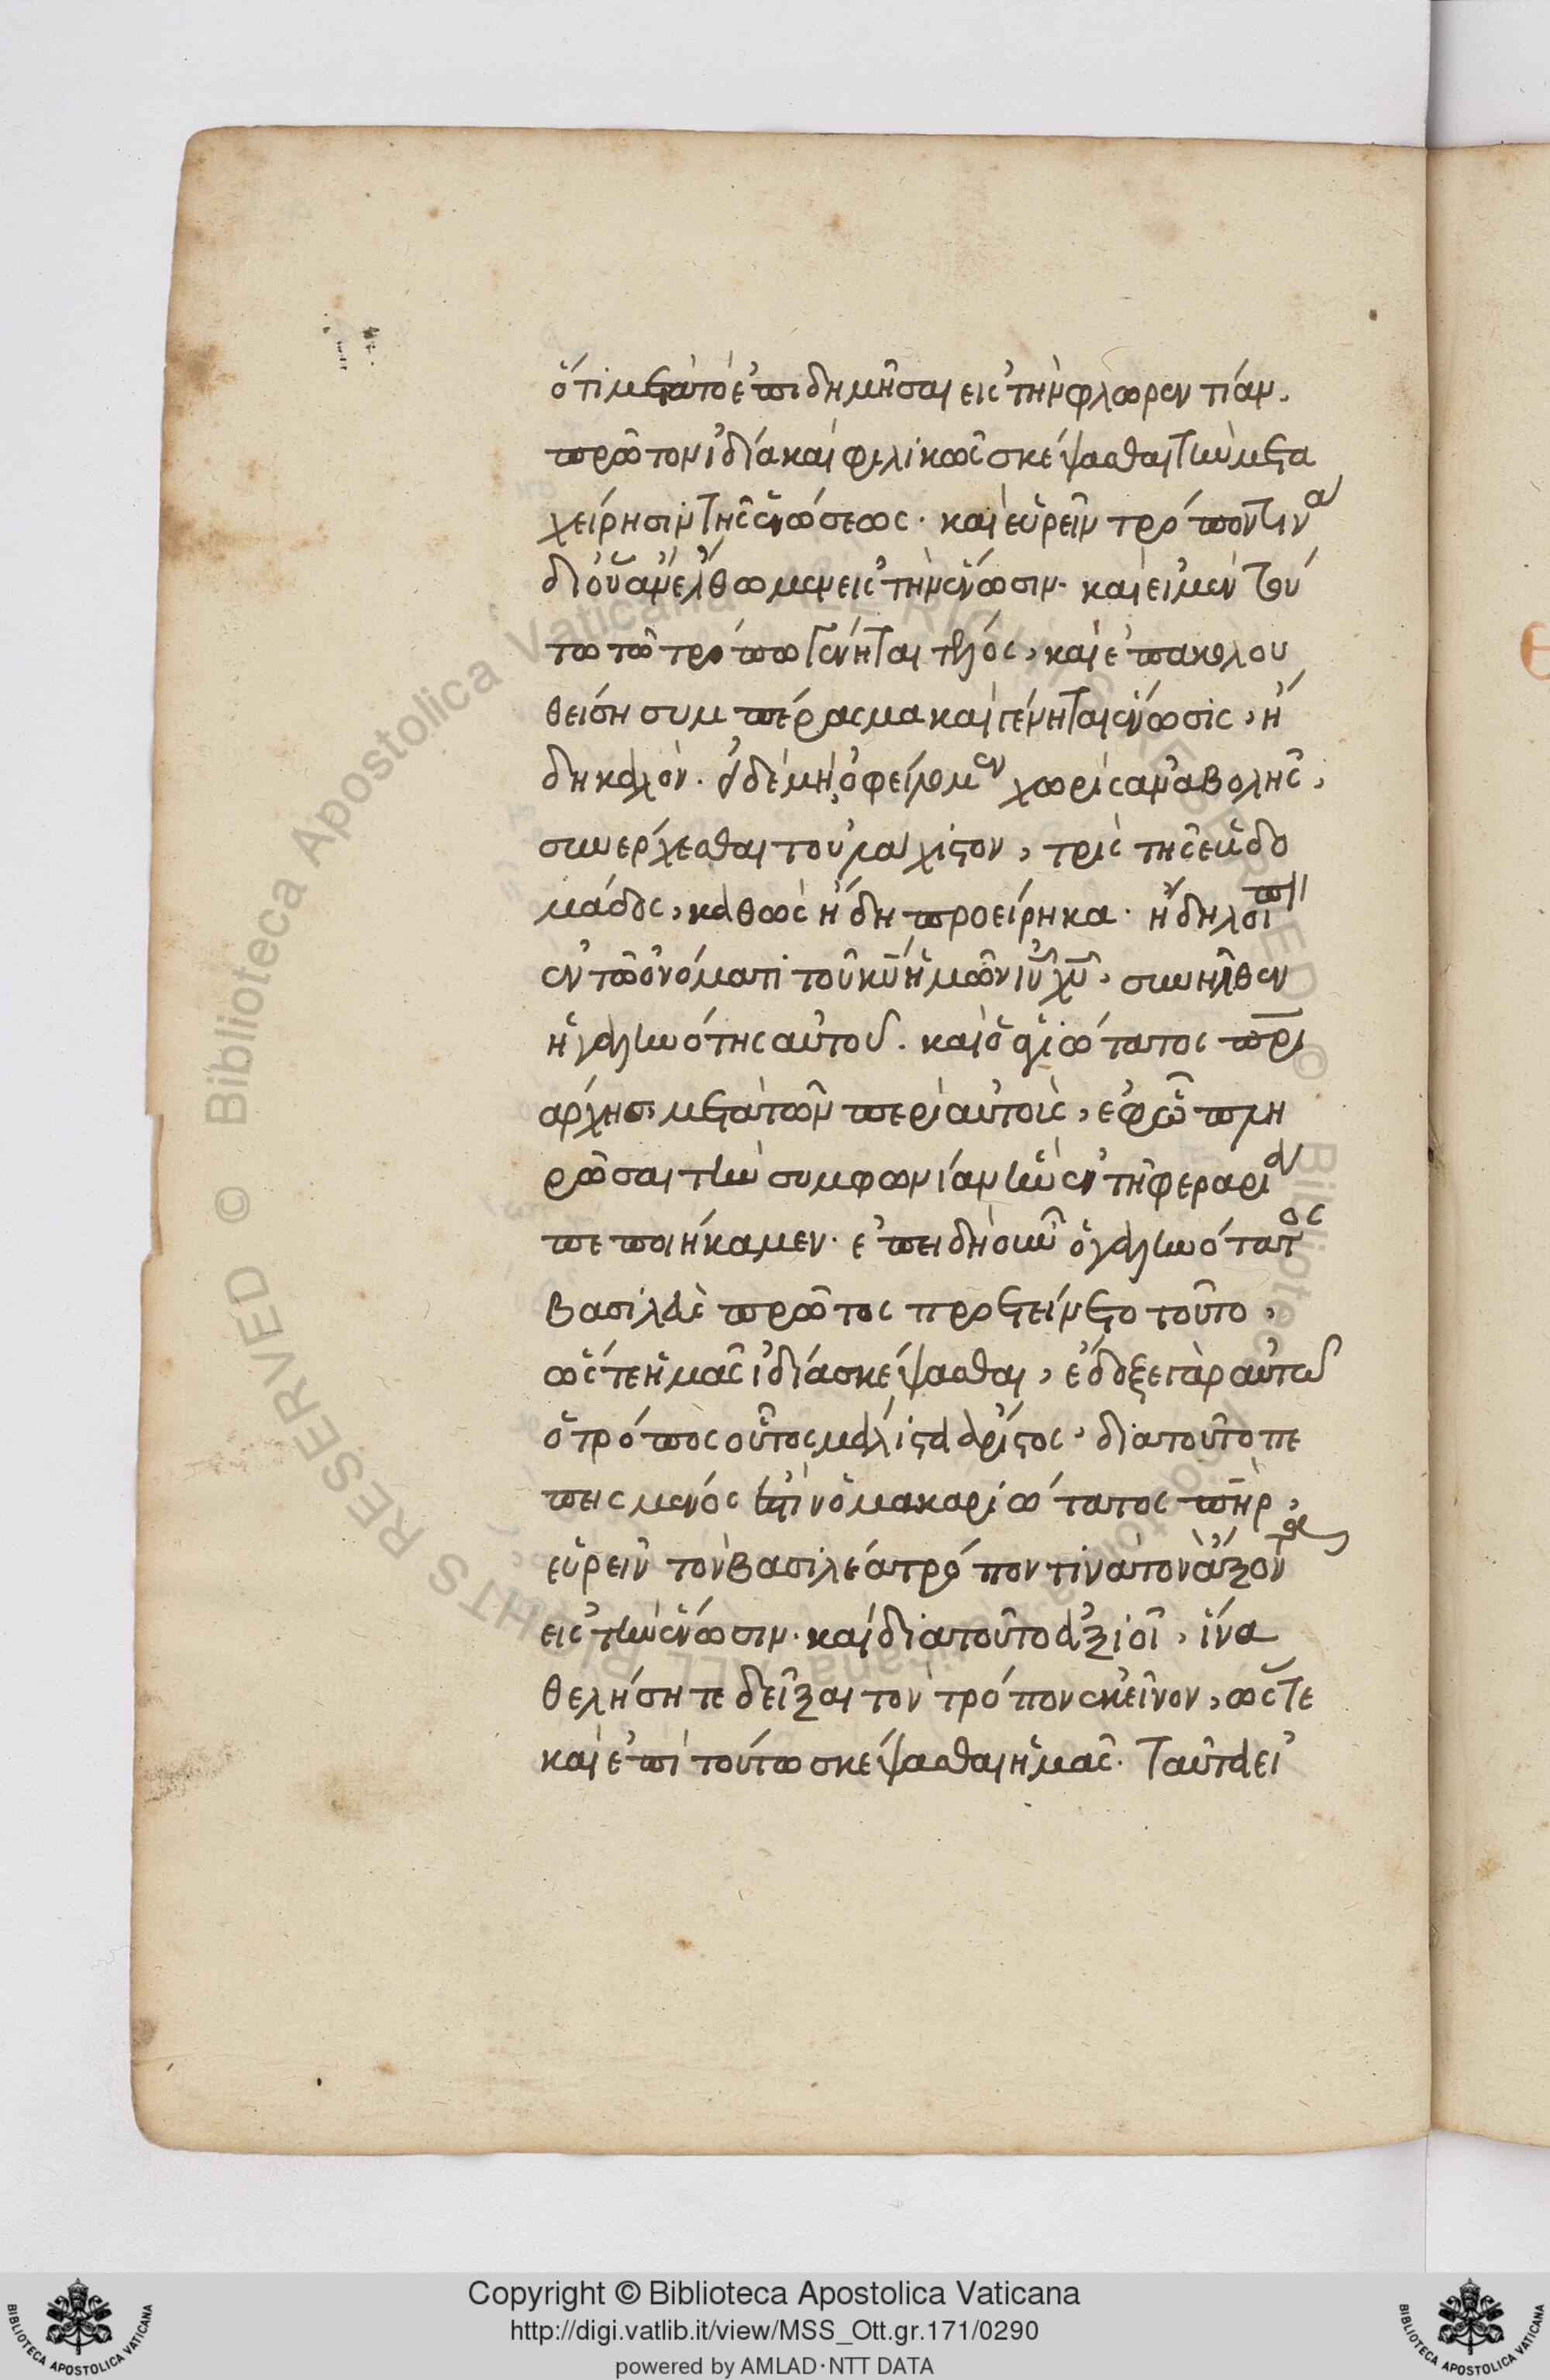 ὅτι μετὰ τὸ ἐπιδημῆσαι εἰς τὴν φλωρεντίαν.
πρῶτον ἰδία καὶ φιλικῶς σκέψασθαι τὴν μετα
χείρησιν τῆς ἑνώσεως. καὶ εὑρεῖν τρόπον τινα
δι οὗ ἀνέλθωμεν εἰς τὴν ἕνωσιν. καὶ εἰ μὲν τού
τω τῶ τρόπω γένηται τέλος, καὶ ἐπακολου
θείση συμπέρασμα καὶ γένηται ἕνωσις, ἤ
δη καλόν. εἰ δὲ μὴ, ὀφείλομεν χωρὶς ἀναβολῆς,
συνέρχεσθαι τοὐλάχιστον, τρὶς τῆς ἑβδο
μάδος, καθὼς ἤδη προείρηκα. ἢ δηλοῖ
ἐν τῶ ὀνόματι τοῦ κυ ἡμῶν ιυ χυ, συνῆλθεν
ἡ γαληνότης αὐτοῦ. καὶ ὁ ἁγιώτατος πρι
άρχης μετὰ τῶν περὶ αὐτοὺς, ἐφ ὧ πλη
ρῶσαι τὴν συμφωνίαν ἣν ἐν τῆ φεραρία
πεποιήκαμεν. ἐπειδὴ οὖν ὁ γαληνότατος
βασιλεὺς πρῶτος προετείνετο τοῦτο,
ὥστε ἡμᾶς ἰδία σκέψασθαι, ἔδοξε γὰρ αὐτῶ
ὁ τρόπος οὗτος μάλιστα ἄριστος, διὰ τοῦτο πε
πεισμένος ἐστὶν ὁ μακαριώτατος πηρ,
εὑρεῖν τὸν βασιλέα τρόπον τινὰ τὸν ἄξοντα
εἰς τὴν ἕνωσιν. καὶ διὰ τοῦτο ἀξιοῖ, ἵνα
θελήσητε δεῖξαι τὸν τρόπον ἐκεῖνον, ὥστε
καὶ ἐπὶ τούτω σκέψασθαι ἡμᾶς. Ταῦτα εἰ
Copyright © Biblioteca Apostolica Vaticana
http://digi.vatlib.it/view/MSS_Ott.gr.171/0290
powered by AMLAD·NTT DATA